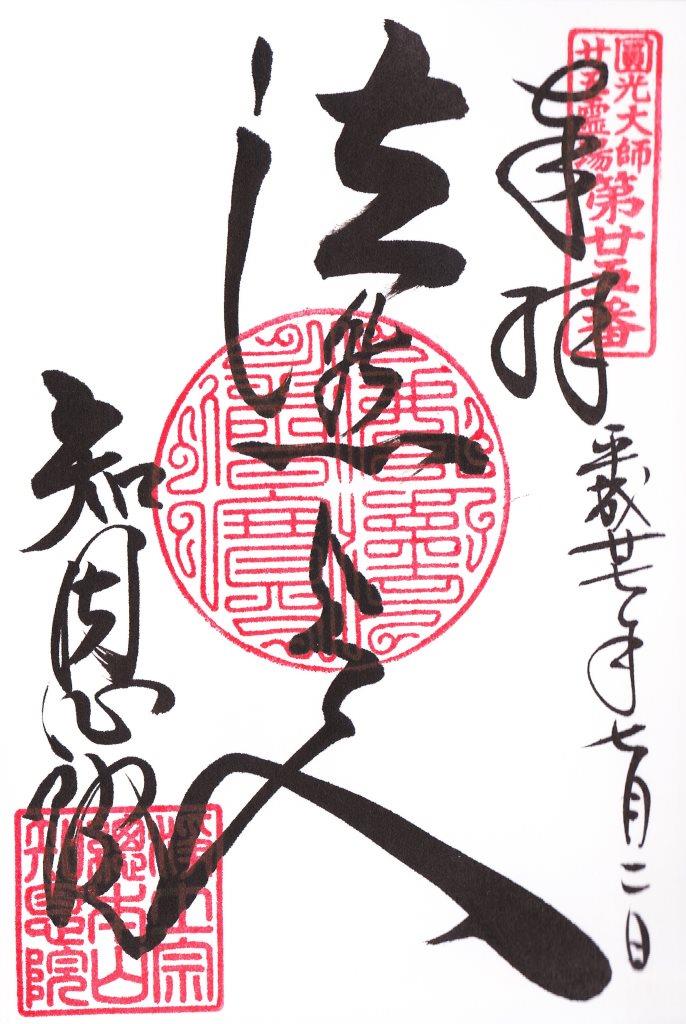 圓光大師
廿五霊場
第廿五番
奉拝
平成廿七年七月二日
法然上人
佛法僧寶
知恩院
浄土宗
總本山
知恩院